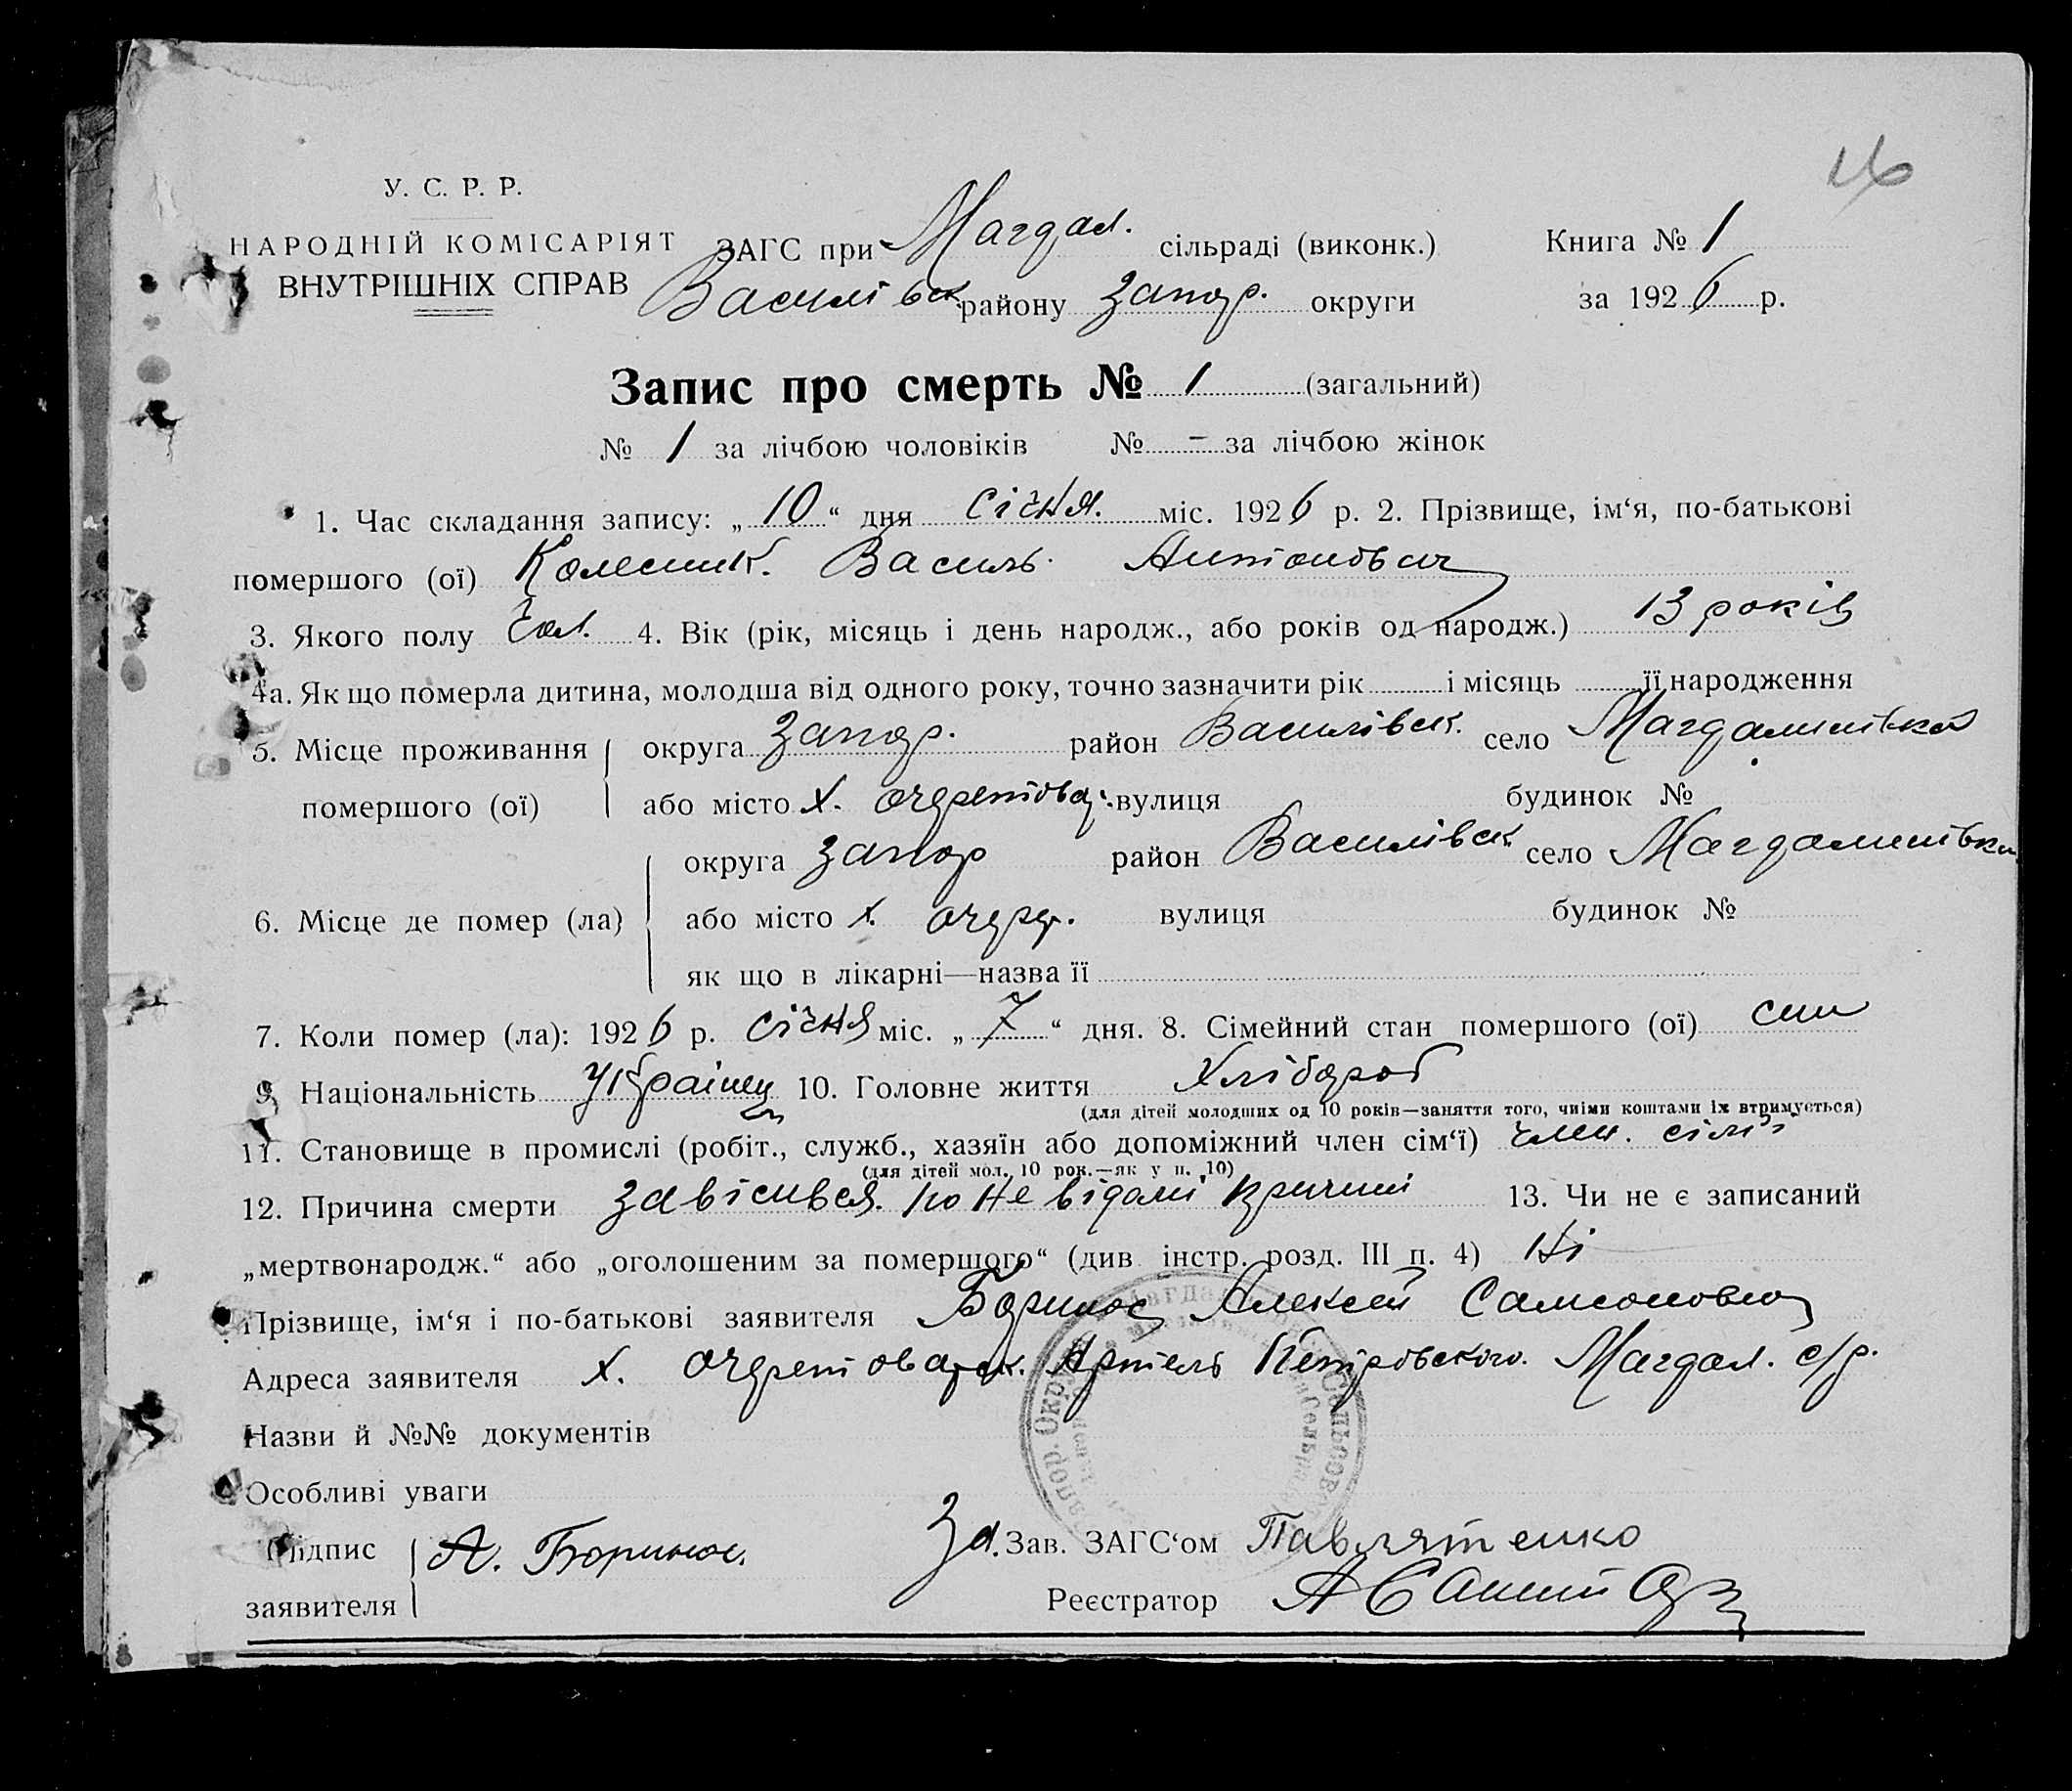 16
У. С. Р. Р.
НАРОДНІЙ КОМІСАРІЯТ
ВНУТРІШНІХ СПРАВ
ЗАГС при Магдал. сільраді (виконк.) Книга № 1
Василівск району Запор. округи за 1926 р.
Запис про смерть № 1 (загальний)
№ 1 за лічбою чоловіків № - за лічбою жінок
1. Час складання запису: „10“ дня січня. міс. 1926 р. 2. Прізвище, ім‘я, по-батькові
помершого (ої) Колесник. Василь. Антонович
3. Якого полу Чол. 4. Вік (рік, місяць і день народж., або років од народж.) 13 років
4а. Як що померла дитина, молодша від одного року, точно зазначити рік і місяць її народження
5. Місце проживання округа Запор. район Василівск. село Магдалинівка
помершого (ої) або місто х. вулиця будинок №
округа Запор район Василівск село Магдалинівка
6. Місце де помер (ла) або місто х. вулиця будинок №
як що в лікарні—назва її
7. Коли помер (ла): 1926 р. січня міс. „7“ дня. 8. Сімейний стан помершого (ої) син
9. Національність Українец 10. Головне життя Хлібороб
(для дітей молодших од 10 років—заняття того, чиїми коштами їх втримується)
11. Становище в промислі (робіт., служб., хазяїн або допоміжний член сім‘ї) член. сімї
(для дітей мол. 10 рок.—як у п. 10)
12. Причина смерти завісився. по не відомі причині 13. Чи не є записаний
„мертвонародж.“ або „оголошеним за помершого“ (див інстр. розд. III п. 4) Ні
Прізвище, ім‘я і по-батькові заявителя Алексей Самсонович
Адреса заявителя х. Артель Петровського. Магдал. с/р.
Назви й №№ документів
Особливі уваги
Підпис А. За. Зав. ЗАГС‘ом Павлятенко
заявителя Реєстратор